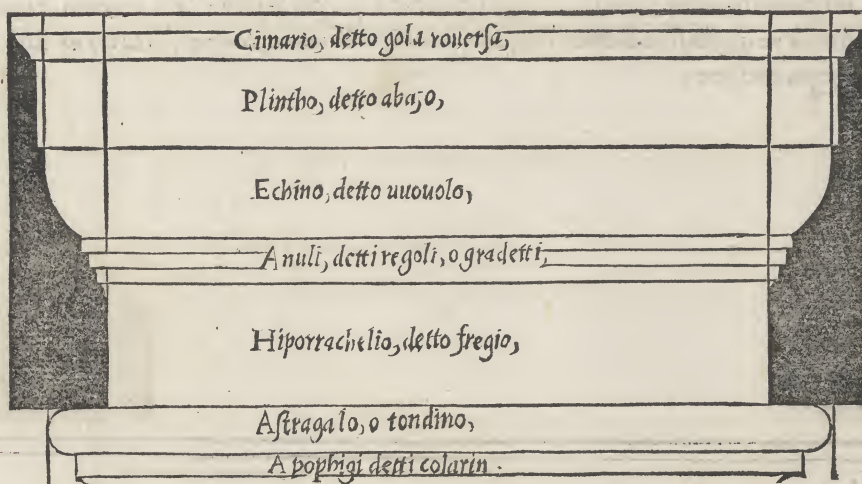 Cimario, detto gola rouerſa,
Plintho, detto abajo,
Echino, detto uuouolo,
Anuli, detti regoli, o gradetti,
Hiporrachelio, detto fregio,
Aſtragalo, o tondino,
Apophigi detti colarin.